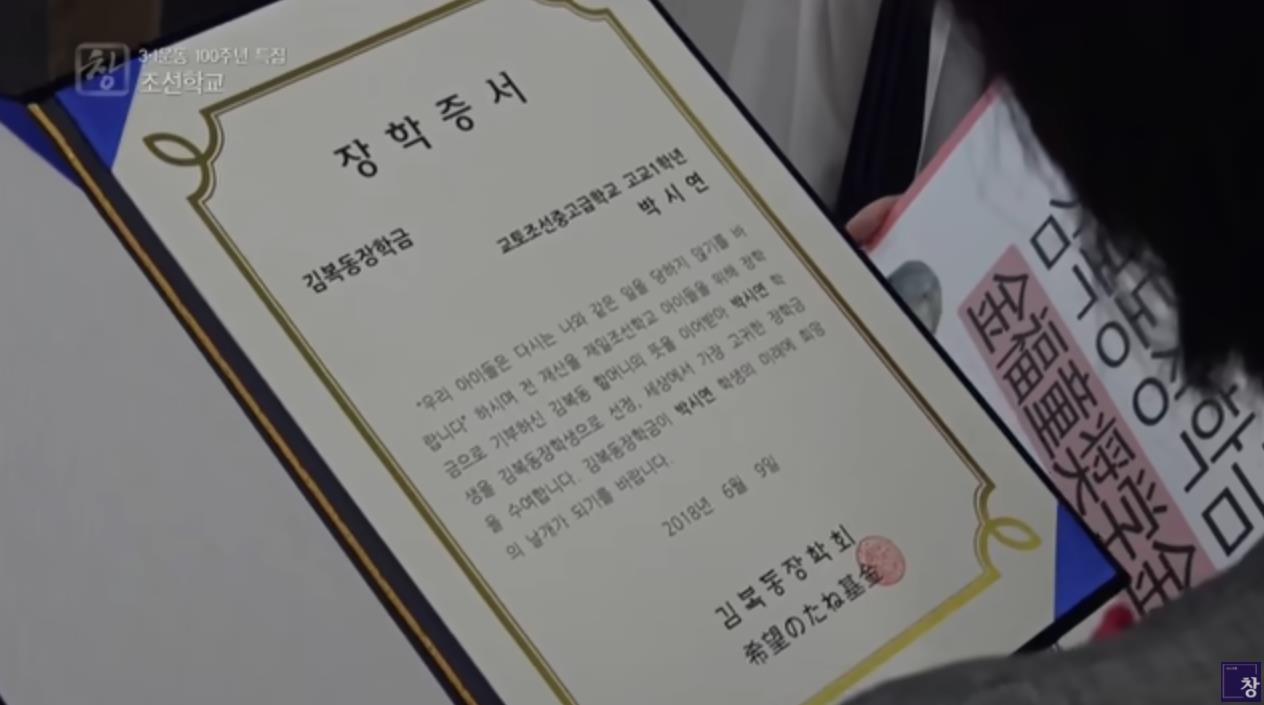 창 3·1운동 100주년 특집
조선학교
장학증서
교토조선중고급학교 고교1학년
박시연
김복동장학금
"우리 아이들은 다시는 나와 같은 일을 당하지 않기를 바
랍니다" 하시며 전 재산을 재일조선학교 아이들을 위해 장학
금으로 기부하신 김복동 할머니의 뜻을 이어받아 박시연 학
생을 김복동장학생으로 선정, 세상에서 가장 고귀한 장학금
을 수여합니다. 김복동장학금이 박시연 학생의 미래에 희망
의 날개가 되기를 바랍니다.
2018년 6월 9일
김복동장학회
希望のたね基金
김복동장학금
金福童奨学金
창